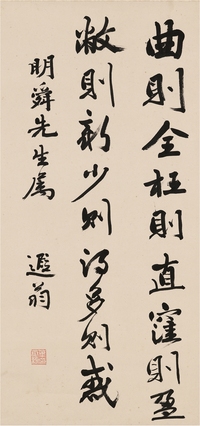 曲則全枉則直窪則盈
敝則新少則得多則惑
明舜先生屬
遐翁